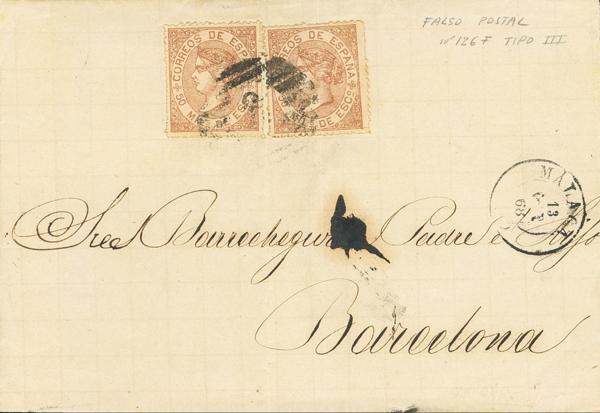 FALSO POSTAL
Nº 126 F TIPO III
CORREOS DE ESPAÑA
50 MILS DE ESCO
CORREOS DE ESPAÑA
DE ESCO
MALAGA
13
69
Sres Barrochegur Padre e Hijo
Barcelona